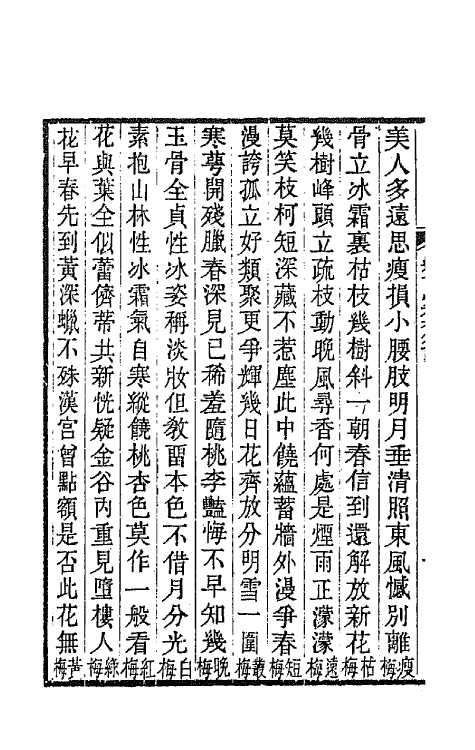 美人多遠思瘦損小腰肢明月垂清照東風憾別離瘦梅
骨立冰霜裏枯枝幾樹斜一朝春信到還解放新花枯梅
幾樹峰頭立疏枝動晚風尋香何處是煙雨正濛濛遠梅
莫笑枝柯短深藏不惹塵此中饒蘊蓄牆外漫爭春短梅
漫誇孤立好類聚更爭輝幾日花齊放分明雪一圍叢梅
寒萼開殘臘春深見已稀羞隨桃李豔悔不早知幾晚梅
玉骨全貞性冰姿稱淡妝但教畱本色不借月分光白梅
素抱山林性冰霜氣自寒縱饒桃杏色莫作一般看紅梅
花與葉全似蕾儕蒂共新恍疑金谷內重見墮樓人綠梅
花早春先到黃深蠟不殊漢宮曾點額是否此花無黃梅